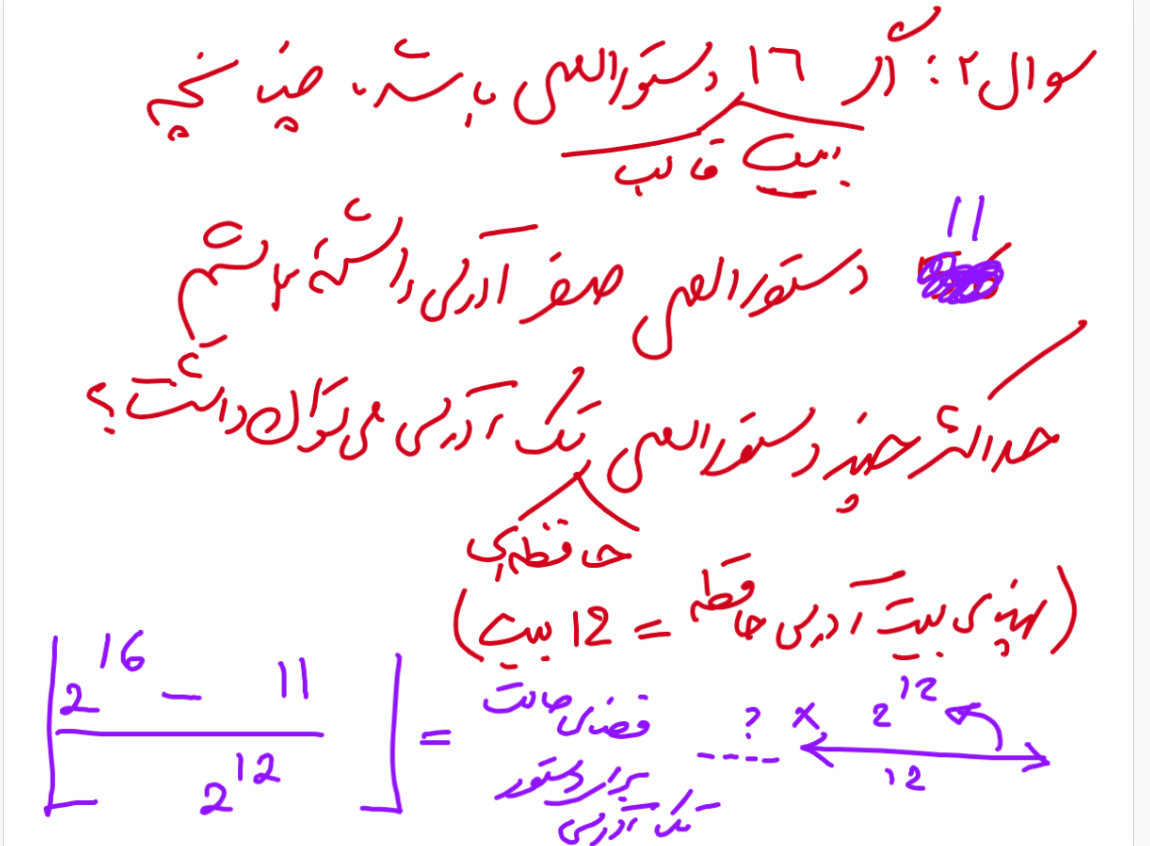 سوال ۲: اگر ۱۶ دستورالعمل باشد، چنانچه
بیت قالب
11 دستورالعمل صفر آدرسی داشته باشیم
حداکثر چند دستورالعمل تک آدرسی می‌توان داشت؟
حافظه‌ی
(پهنای بیت آدرس حافظه = 12 بیت)
⌊(2^16 - 11) / 2^12⌋ = فضای حالت برای دستور تک آدرسی
? × 2^12
12